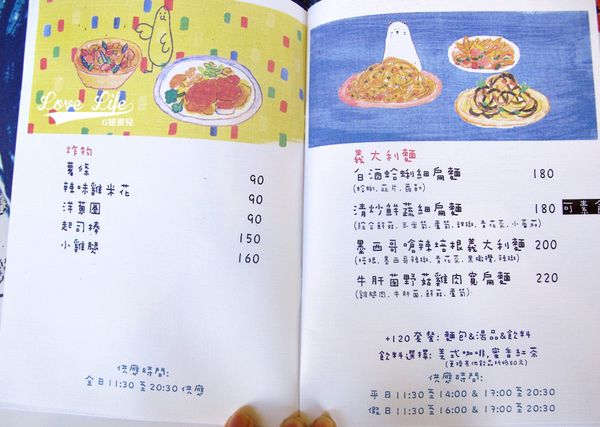 Love Life
G妞要兒
炸物
薯條 90
辣味雞米花 90
洋蔥圈 90
起司棒 150
小雞腿 160
供應時間:
全日11:30至20:30供應
義大利麵
白酒蛤蜊細扁麵 180
清炒鮮蔬細扁麵 180
可素食
墨西哥嗆辣培根義大利麵 200
(培根,墨西哥辣椒,青花菜,黑橄欖,辣椒)
牛肝菌野菇雞肉寬扁麵 220
(雞腿肉,牛肝菌,鮮菇,蘆筍)
+120套餐:麵包&湯品&飲料
飲料選擇:美式咖啡,蜜香紅茶
供應時間:
平日11:30至14:00 & 17:00至20:30
假日11:30至16:00 & 17:00至20:30